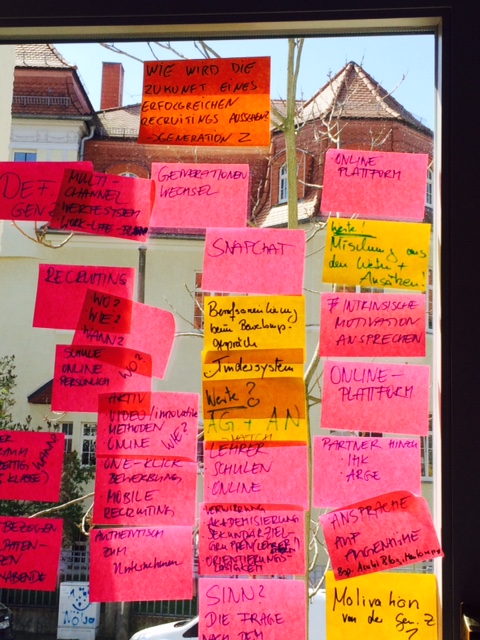 WIE WIRD DIE
ZUKUNFT EINES
ERFOLGREICHEN
RECRUITINGS AUSSEHEN?
GENERATION Z
DEF.
GEN Z
MULTI-
CHANNEL
WERTESYSTEM
WORK-LIFE-
GENERATIONEN
WECHSEL
ONLINE
PLATTFORM
SNAPCHAT
Werte!
Mischung aus
den Werten +
Ansätzen!
RECRUITING
WO?
WIE?
WANN?
Berufsorientierung
beim
gespräch
Tindersystem
# INTRINSISCHE
MOTIVATION
ANSPRECHEN
SCHULE
ONLINE
PERSÖNLICH
WO?
Werte?
AG + AN
MATCH
ONLINE-
PLATTFORM
AKTIV
VIDEO/innovative
METHODEN
ONLINE
WIE?
WANN?
KLASSE)
LEHRER
SCHULEN
ONLINE
PARTNER
IHK
ARGE
ONE-KLICK
BEWERBUNG
MOBILE
RECRUITING
VERWIRRUNG
AKADEMISIERUNG
SEKUNDARZIEL-
GRUPPEN
ORIENTIERUNGS-
LOSIGKEIT
ANSPRACHE
AUF
AUGENHÖHE
Bsp. Azubi Blog,
BEZOGEN
AUTHENTISCH
ZUM
Unternehmen
SINN?
DIE FRAGE
NACH DEM
Motivation
von der Gen. Z
?